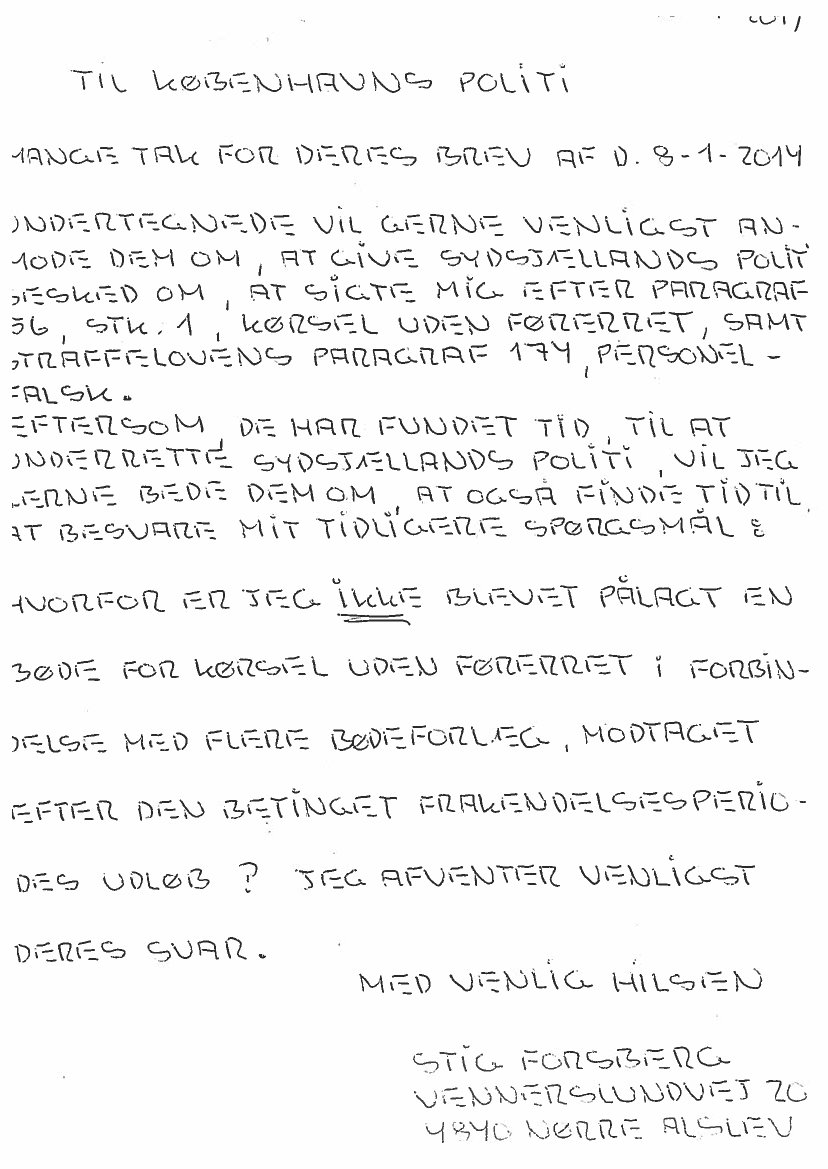 TIL KØBENHAVNS POLITI
MANGE TAK FOR DERES BREV AF D. 8-1-2014
UNDERTEGNEDE VIL GERNE VENLIGST AN-
MODE DEM OM, AT GIVE SYDSJÆLLANDS POLITI
BESKED OM, AT SIGTE MIG EFTER PARAGRAF
56, STK. 1, KØRSEL UDEN FØRERRET, SAMT
STRAFFELOVENS PARAGRAF 174, PERSONEL-
FALSK.
EFTERSOM, DE HAR FUNDET TID, TIL AT
UNDERRETTE SYDSJÆLLANDS POLITI, VIL JEG
GERNE BEDE DEM OM, AT OGSÅ FINDE TID TIL,
AT BESVARE MIT TIDLIGERE SPØRGSMÅL :
HVORFOR ER JEG IKKE BLEVET PÅLAGT EN
BØDE FOR KØRSEL UDEN FØRERRET I FORBIN-
DELSE MED FLERE BØDEFORLÆG, MODTAGET
EFTER DEN BETINGET FRAKENDELSESPERIO-
DES UDLØB ? JEG AFVENTER VENLIGST
DERES SVAR.
MED VENLIG HILSEN
STIG FORSBERG
VENNERSLUNDVEJ 20
4840 NØRRE ALSLEV